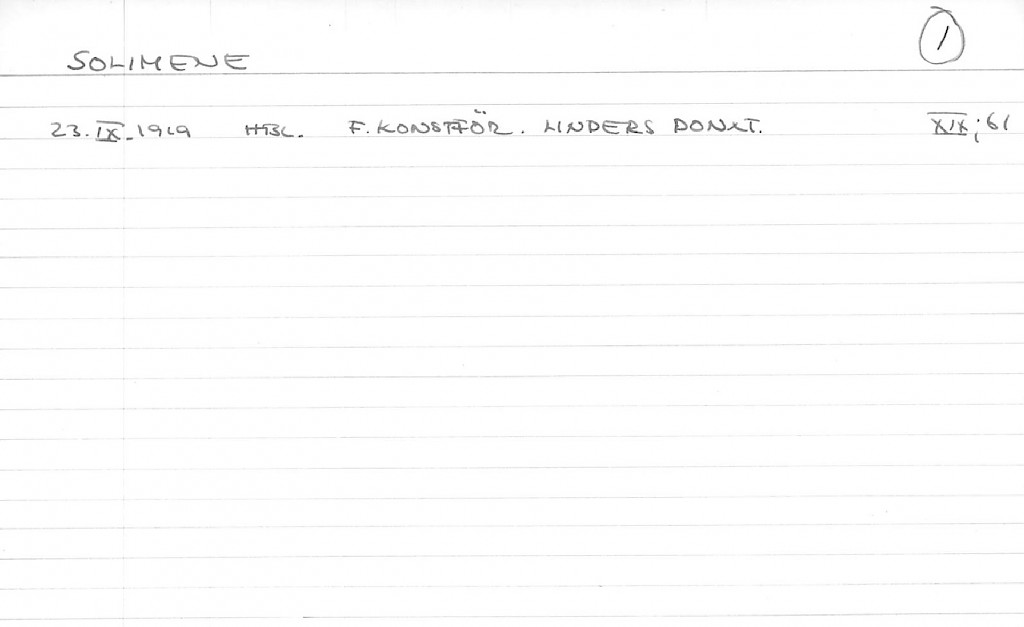 1
SOLIMENE
23.IX.1919 HBL. F. KONSTFÖR. LINDERS DONAT. XIX; 61